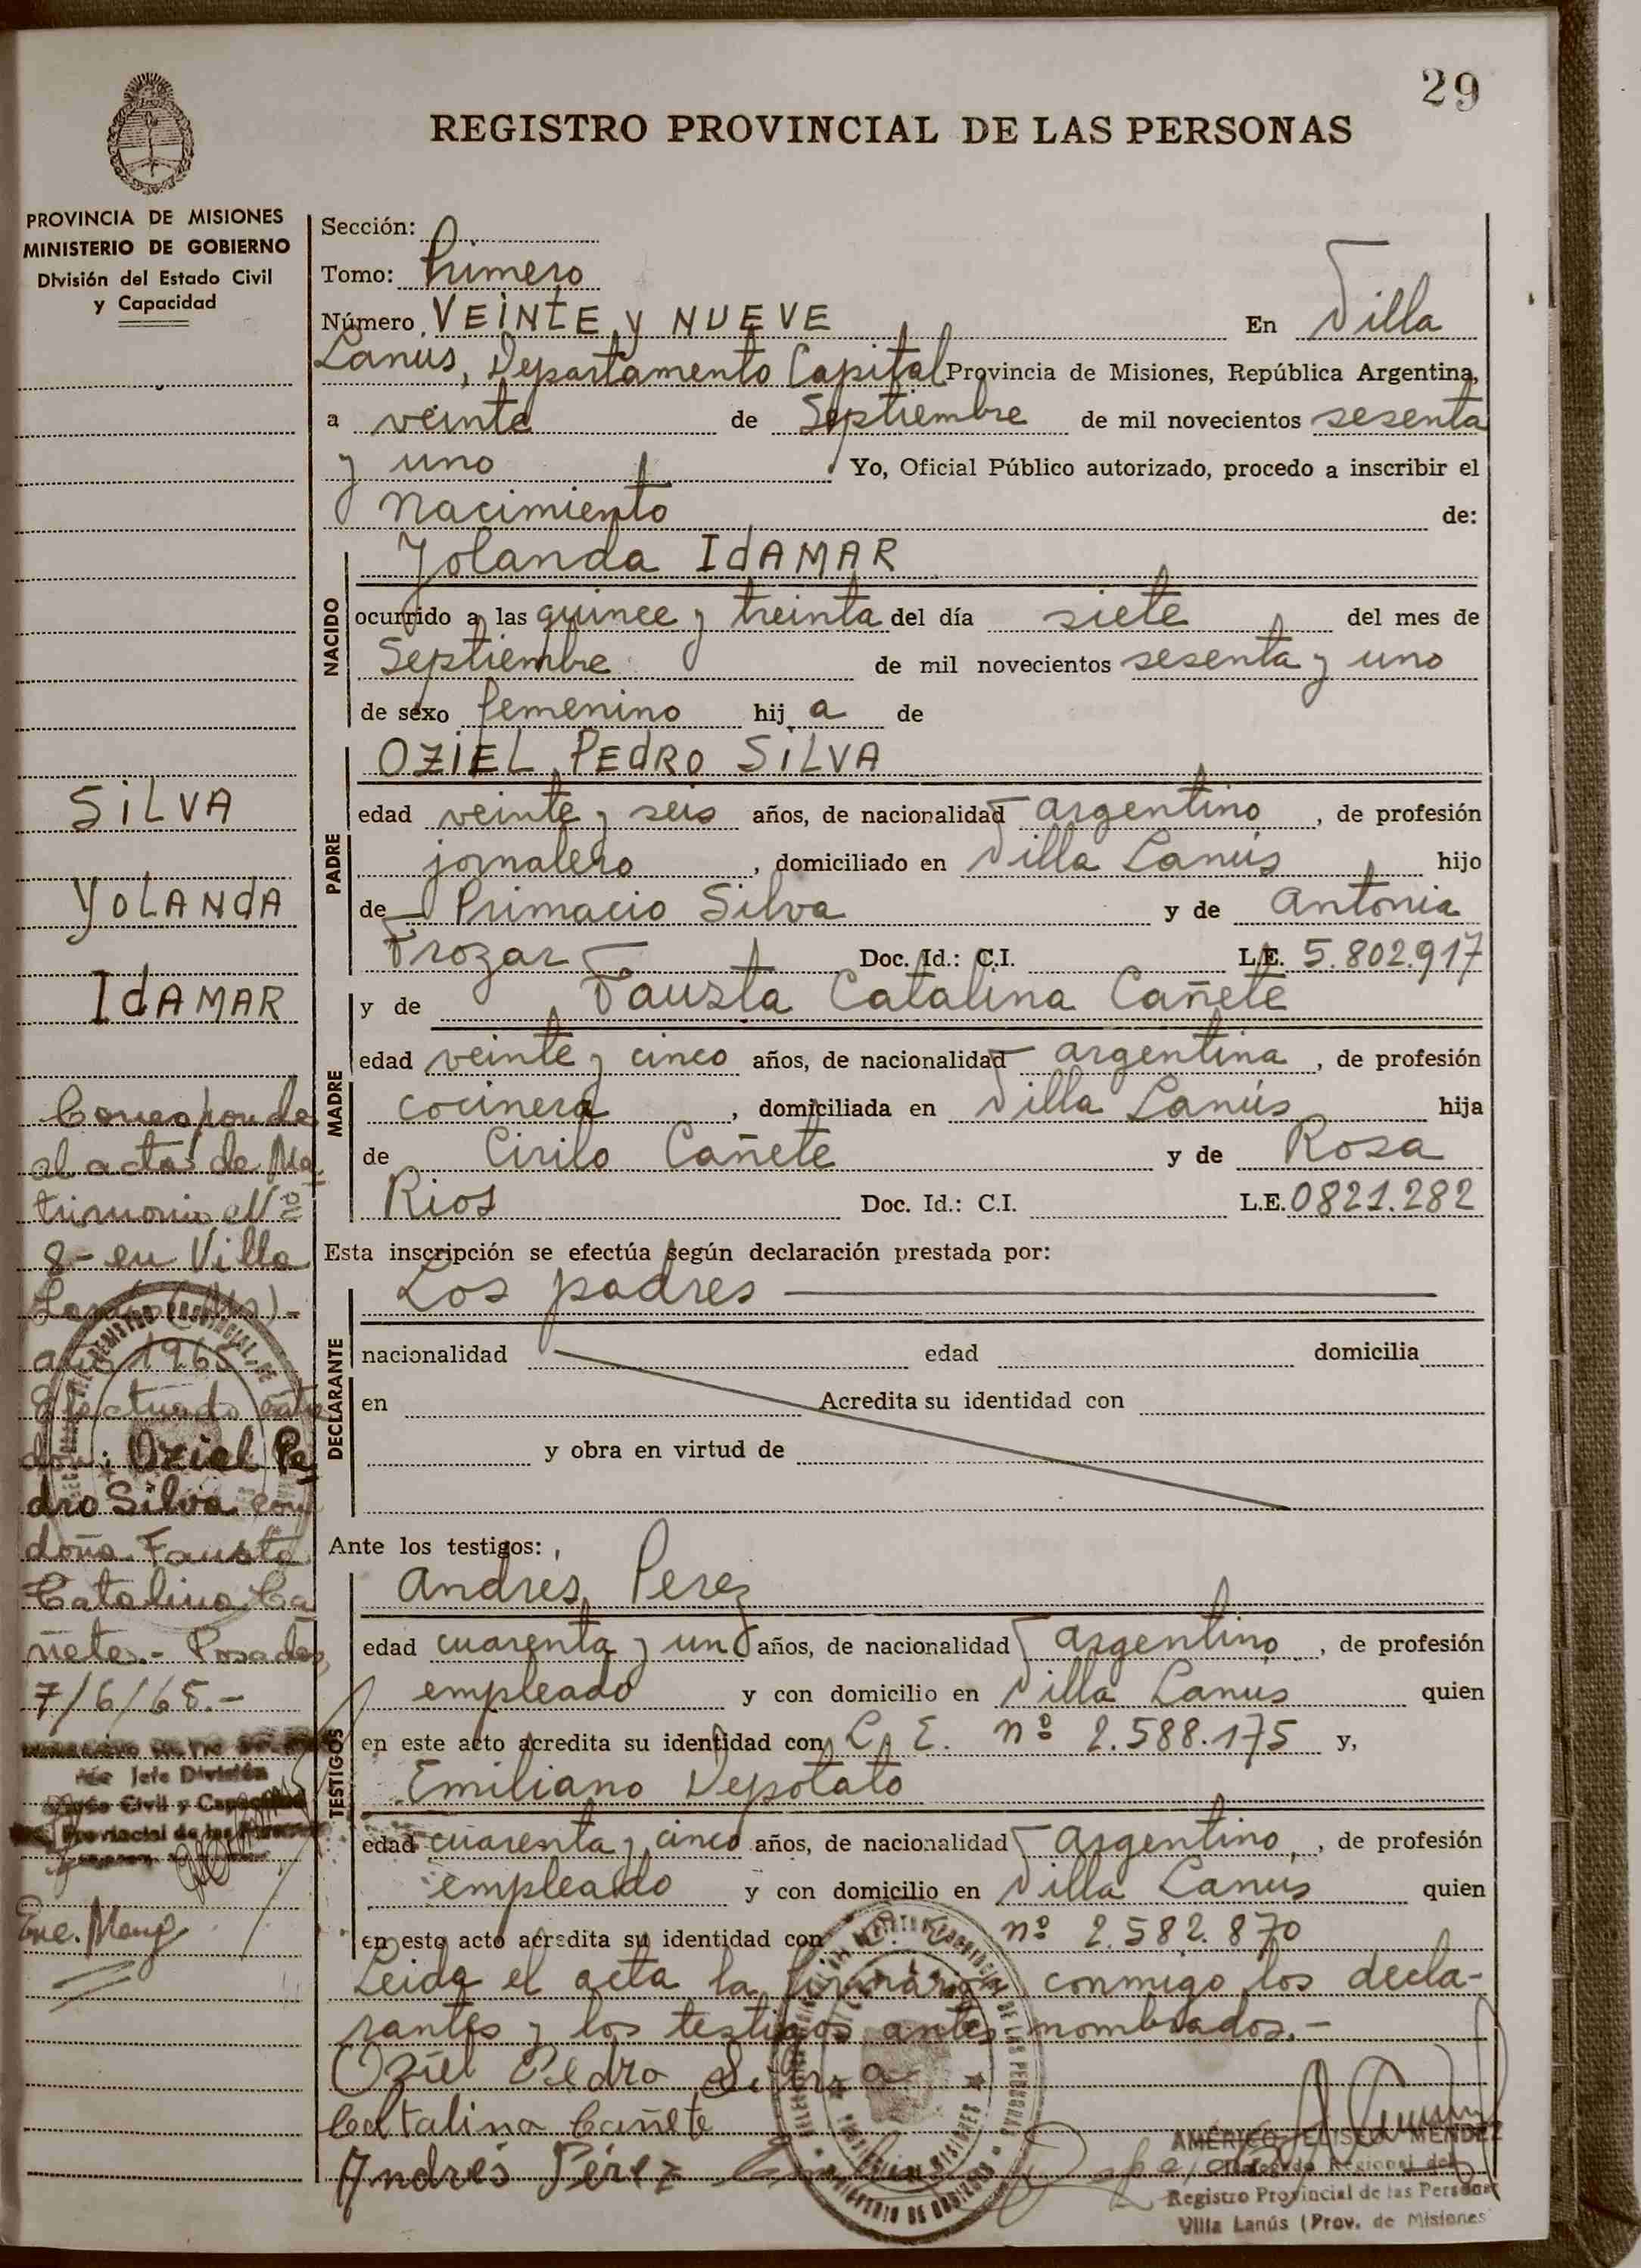 29
REGISTRO PROVINCIAL DE LAS PERSONAS
PROVINCIA DE MISIONES
MINISTERIO DE GOBIERNO
División del Estado Civil
y Capacidad
Sección:
Tomo: Primero
Número VEINTE y NUEVE En Villa
Lanús, Departamento Capital Provincia de Misiones, República Argentina,
a veinte de Septiembre de mil novecientos sesenta
y uno Yo, Oficial Público autorizado, procedo a inscribir el
Nacimiento de:
NACIDO
Yolanda IdAMAR
ocurrido a las quince y treinta del día siete del mes de
Septiembre de mil novecientos sesenta y uno
de sexo femenino hij a de
PADRE
OZIEL PEdRO SILVA
edad veinte y seis años, de nacionalidad argentino, de profesión
jornalero, domiciliado en Villa Lanús hijo
de Primacio Silva y de Antonia
Trozar Doc. Id.: C.I. L.E. 5.802.917
MADRE
y de Fausta Catalina Cañete
edad veinte y cinco años, de nacionalidad argentina, de profesión
cocinera, domiciliada en Villa Lanús hija
de Cirilo Cañete y de Rosa
Rios Doc. Id.: C.I. L.E. 0821.282
Esta inscripción se efectúa según declaración prestada por:
DECLARANTE
Los padres
nacionalidad edad domicilia
en Acredita su identidad con
y obra en virtud de
Ante los testigos:
TESTIGOS
Andrés Perez
edad cuarenta y un años, de nacionalidad argentino, de profesión
empleado y con domicilio en Villa Lanús quien
en este acto acredita su identidad con L. E. nº 2.588.175 y,
Emiliano Depotato
edad cuarenta y cinco años, de nacionalidad argentino, de profesión
empleado y con domicilio en Villa Lanús quien
en este acto acredita su identidad con nº 2.582.870
Leida el acta la firmarón conmigo los decla-
rantes y los testigos antes nombrados.-
Oziel Pedro Silva
Catalina Cañete
Andrés Pérez
AMÉRICO ELISEO MENDEZ
Delegado Regional del
Registro Provincial de las Personas
Villa Lanús (Prov. de Misiones
SILVA
YOLANdA
IdAMAR
Corresponde
al acta de Ma
trimonio Nº
8- en Villa
Lanús (Mns)-
año 1965
Efectuado entre
don: Oziel Pe
dro Silva con
doña Fausta
Catalina Ca
ñete.- Posadas,
7/6/65.-
Jefe División
Civil y Capacidad
Provincial de las Personas
Enc.